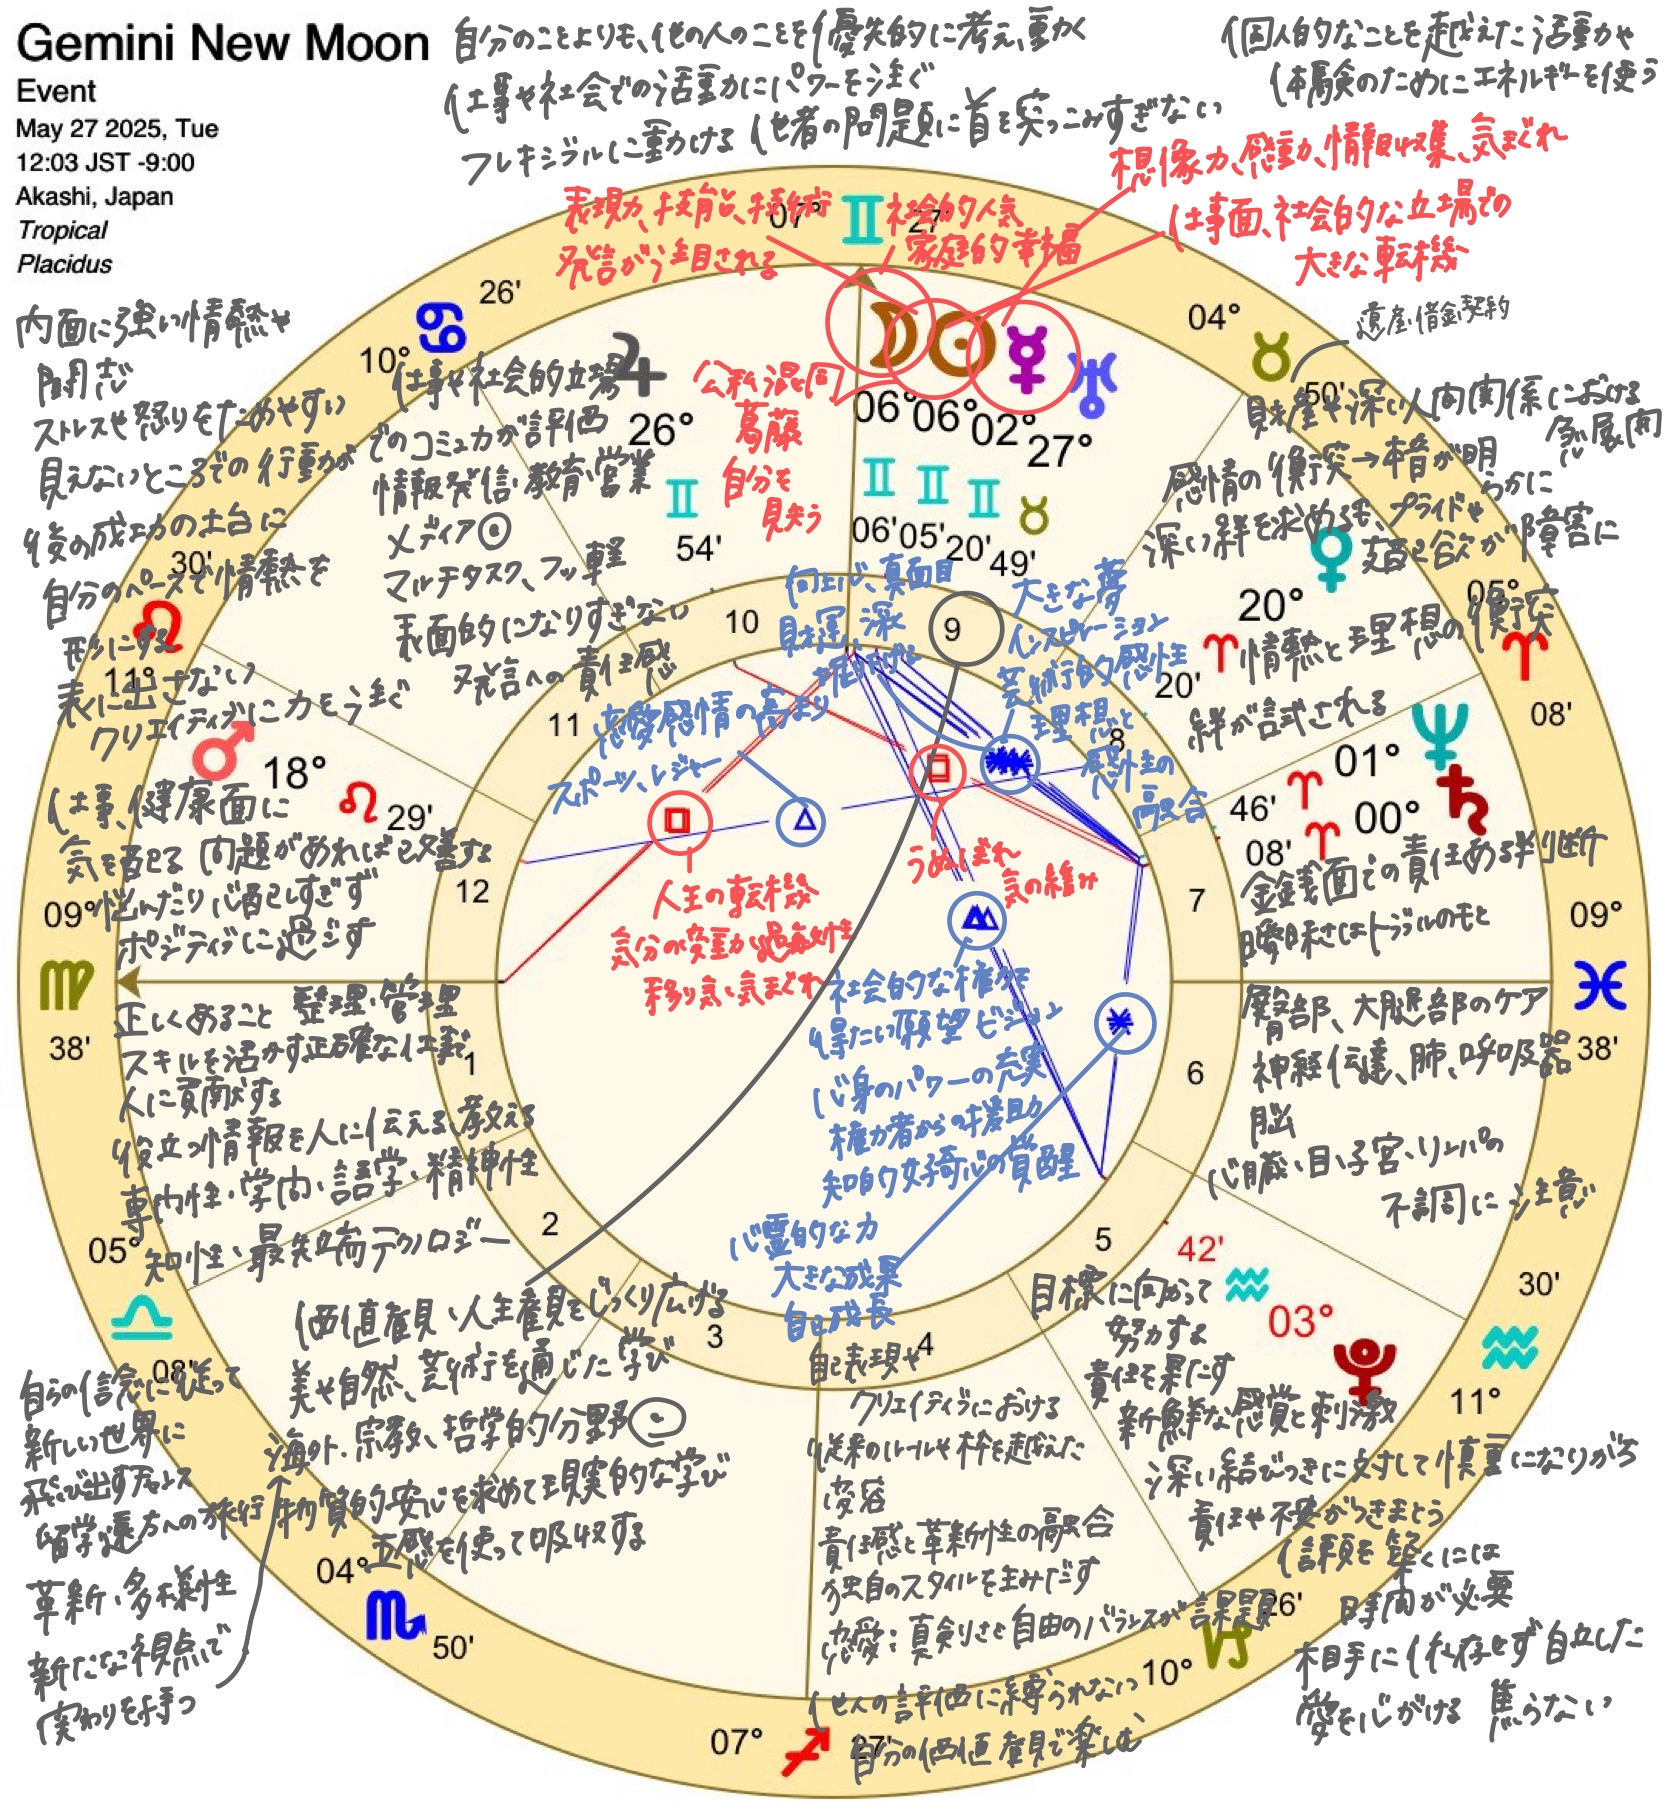 Gemini New Moon
Event
May 27 2025, Tue
12:03 JST -9:00
Akashi, Japan
Tropical
Placidus
自分のことよりも、他の人のことを優先的に考え、動く
仕事や社会での活動にパワーを注ぐ
フレキシブルに動ける 他者の問題に首を突っこみすぎない
個人的なことを越えた活動や
体験のためにエネルギーを使う
想像力、感動、情報収集、気まぐれ
仕事面、社会的な立場での
大きな転機
表現力、技能、技術
発言が注目される
社会的人気
家庭的幸福
遺産・借金・契約
内面に強い情熱や
闘志
ストレスや怒りをためやすい
見えないところでの行動が
後の成功の土台に
自分のペースで情熱を
形にする
表に出さない
クリエイティブに力を注ぐ
仕事や社会的立場
でのコミュ力が評価
情報発信・教育・営業
メディア
マルチタスク、フッ軽
表面的になりすぎない
発言への責任感
公私混同
葛藤
自分を
見失う
財産や深い人間関係における
急展開
感情の衝突→本音が明
らかに
深い絆を求めるも、プライドや
支配欲が障害に
情熱と理想の衝突
絆が試される
向上心、真面目
財運
深
掘りする
大きな夢
インスピレーション
芸術的感性
理想と
感性の
融合
恋愛感情の高まり
スポーツ、レジャー
仕事、健康面に
気を配る 問題があれば改善する
悩んだり心配しすぎず
ポジティブに過ごす
人生の転機
気分の変動が過敏性
移り気、気まぐれ
うぬぼれ
気の緩み
金銭面での責任ある判断
曖昧さはトラブルのもと
社会的な権力を
得たい願望 ビジョン
心身のパワーの充実
権力者からの援助
知的好奇心の覚醒
心霊的な力
大きな成果
自己成長
正しくあること 整理・管理
スキルを活かす正確な仕事で
人に貢献する
役立つ情報を人に伝える、教える
専門性・学問・語学・精神性
知性・最先端テクノロジー
臀部、大腿部のケア
神経伝達、肺、呼吸器
脳
心臓・目・子宮・リンパの
不調に注意
価値観・人生観をじっくり広げる
美や自然、芸術を通じた学び
海外・宗教、哲学的分野
物質的安心を求めて現実的な学び
五感を使って吸収する
自らの信念に従って
新しい世界に
飛び出すチャンス
留学、遠方への旅行
革新・多様性
新たな視点で
関わりを持つ
自己表現や
クリエイティブにおける
従来のルールや枠を越えた
変容
責任感と革新性の融合
独自のスタイルを生みだす
恋愛：真剣さと自由のバランスが課題
他人の評価に縛られない
自分の価値観で楽しむ
目標に向かって
努力する
責任を果たす
新鮮な感覚と刺激
深い結びつきに対して慎重になりがち
責任や不安がつきまとう
信頼を築くには
時間が必要
相手に依存せず自立した
愛を心がける 焦らない
07° 27'
26'
10°
04°
50'
26°
54'
06° 06° 02° 27°
06' 05' 20' 49'
30'
11°
18°
29'
20°
20'
05°
08'
01°
46'
00°
08'
09°
38'
09°
38'
05°
08'
04°
50'
07° 27'
10°
26'
11°
30'
42'
03°
1
2
3
4
5
6
7
8
9
10
11
12